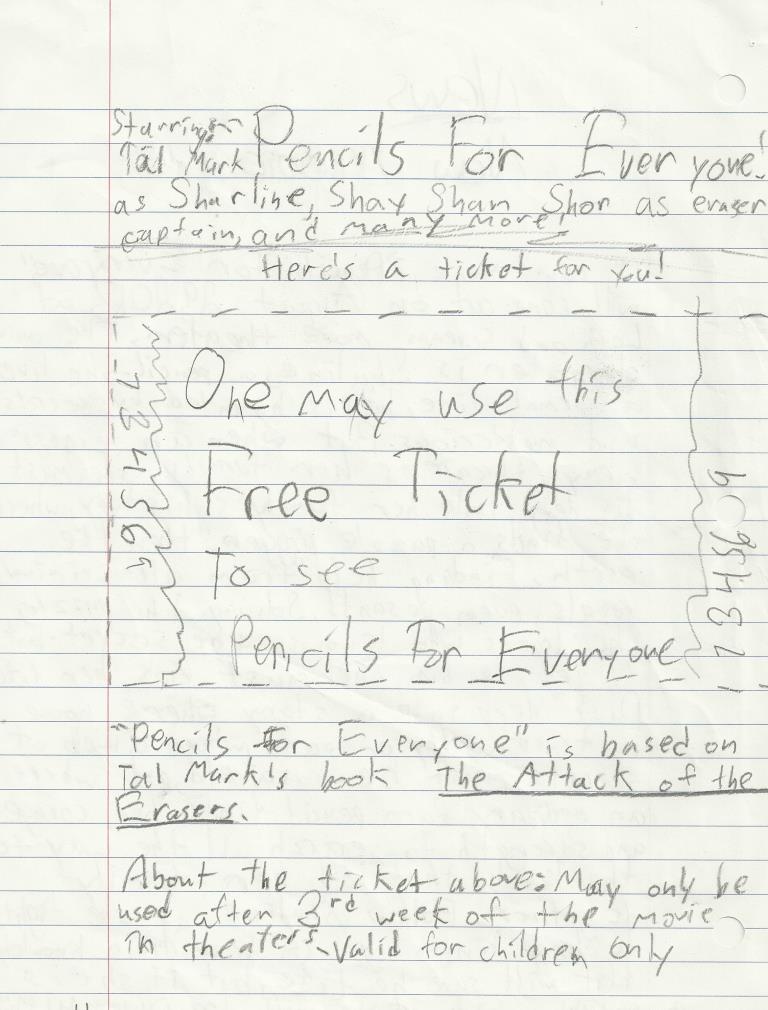 Starring:
Tal Mark Pencils For Everyone!
as Sharline, Shay Sham Shor as eraser
captain, and many more!
Here's a ticket for you!
One may use this
Free Ticket
To see
Pencils For Everyone
"Pencils For Everyone" is based on
Tal Mark's book The Attack of the
Erasers.
About the ticket above: May only be
used after 3rd week of the movie
in theaters. Valid for children only